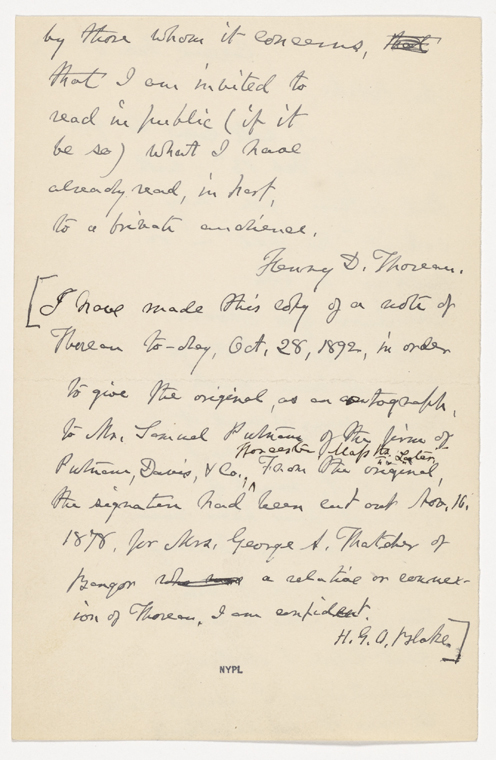 by those whom it concerns, that
that I am invited to
read in public (if it
be so) what I have
already read, in part,
to a private audience.
Henry D. Thoreau.
[I have made this copy of a note of
Thoreau to-day, Oct. 28, 1892, in order
to give the original, as an autograph,
to Mr. Samuel Putnam of the firm of
Worcester, Mass.
Putnam, Davis, & Co., From the original,
the signature had been cut out Nov. 16.
1878. for Mrs. George A. Thatcher of
Bangor who was a relative or connex-
ion of Thoreau, I am confident.
H. G. O. Blake.]
NYPL